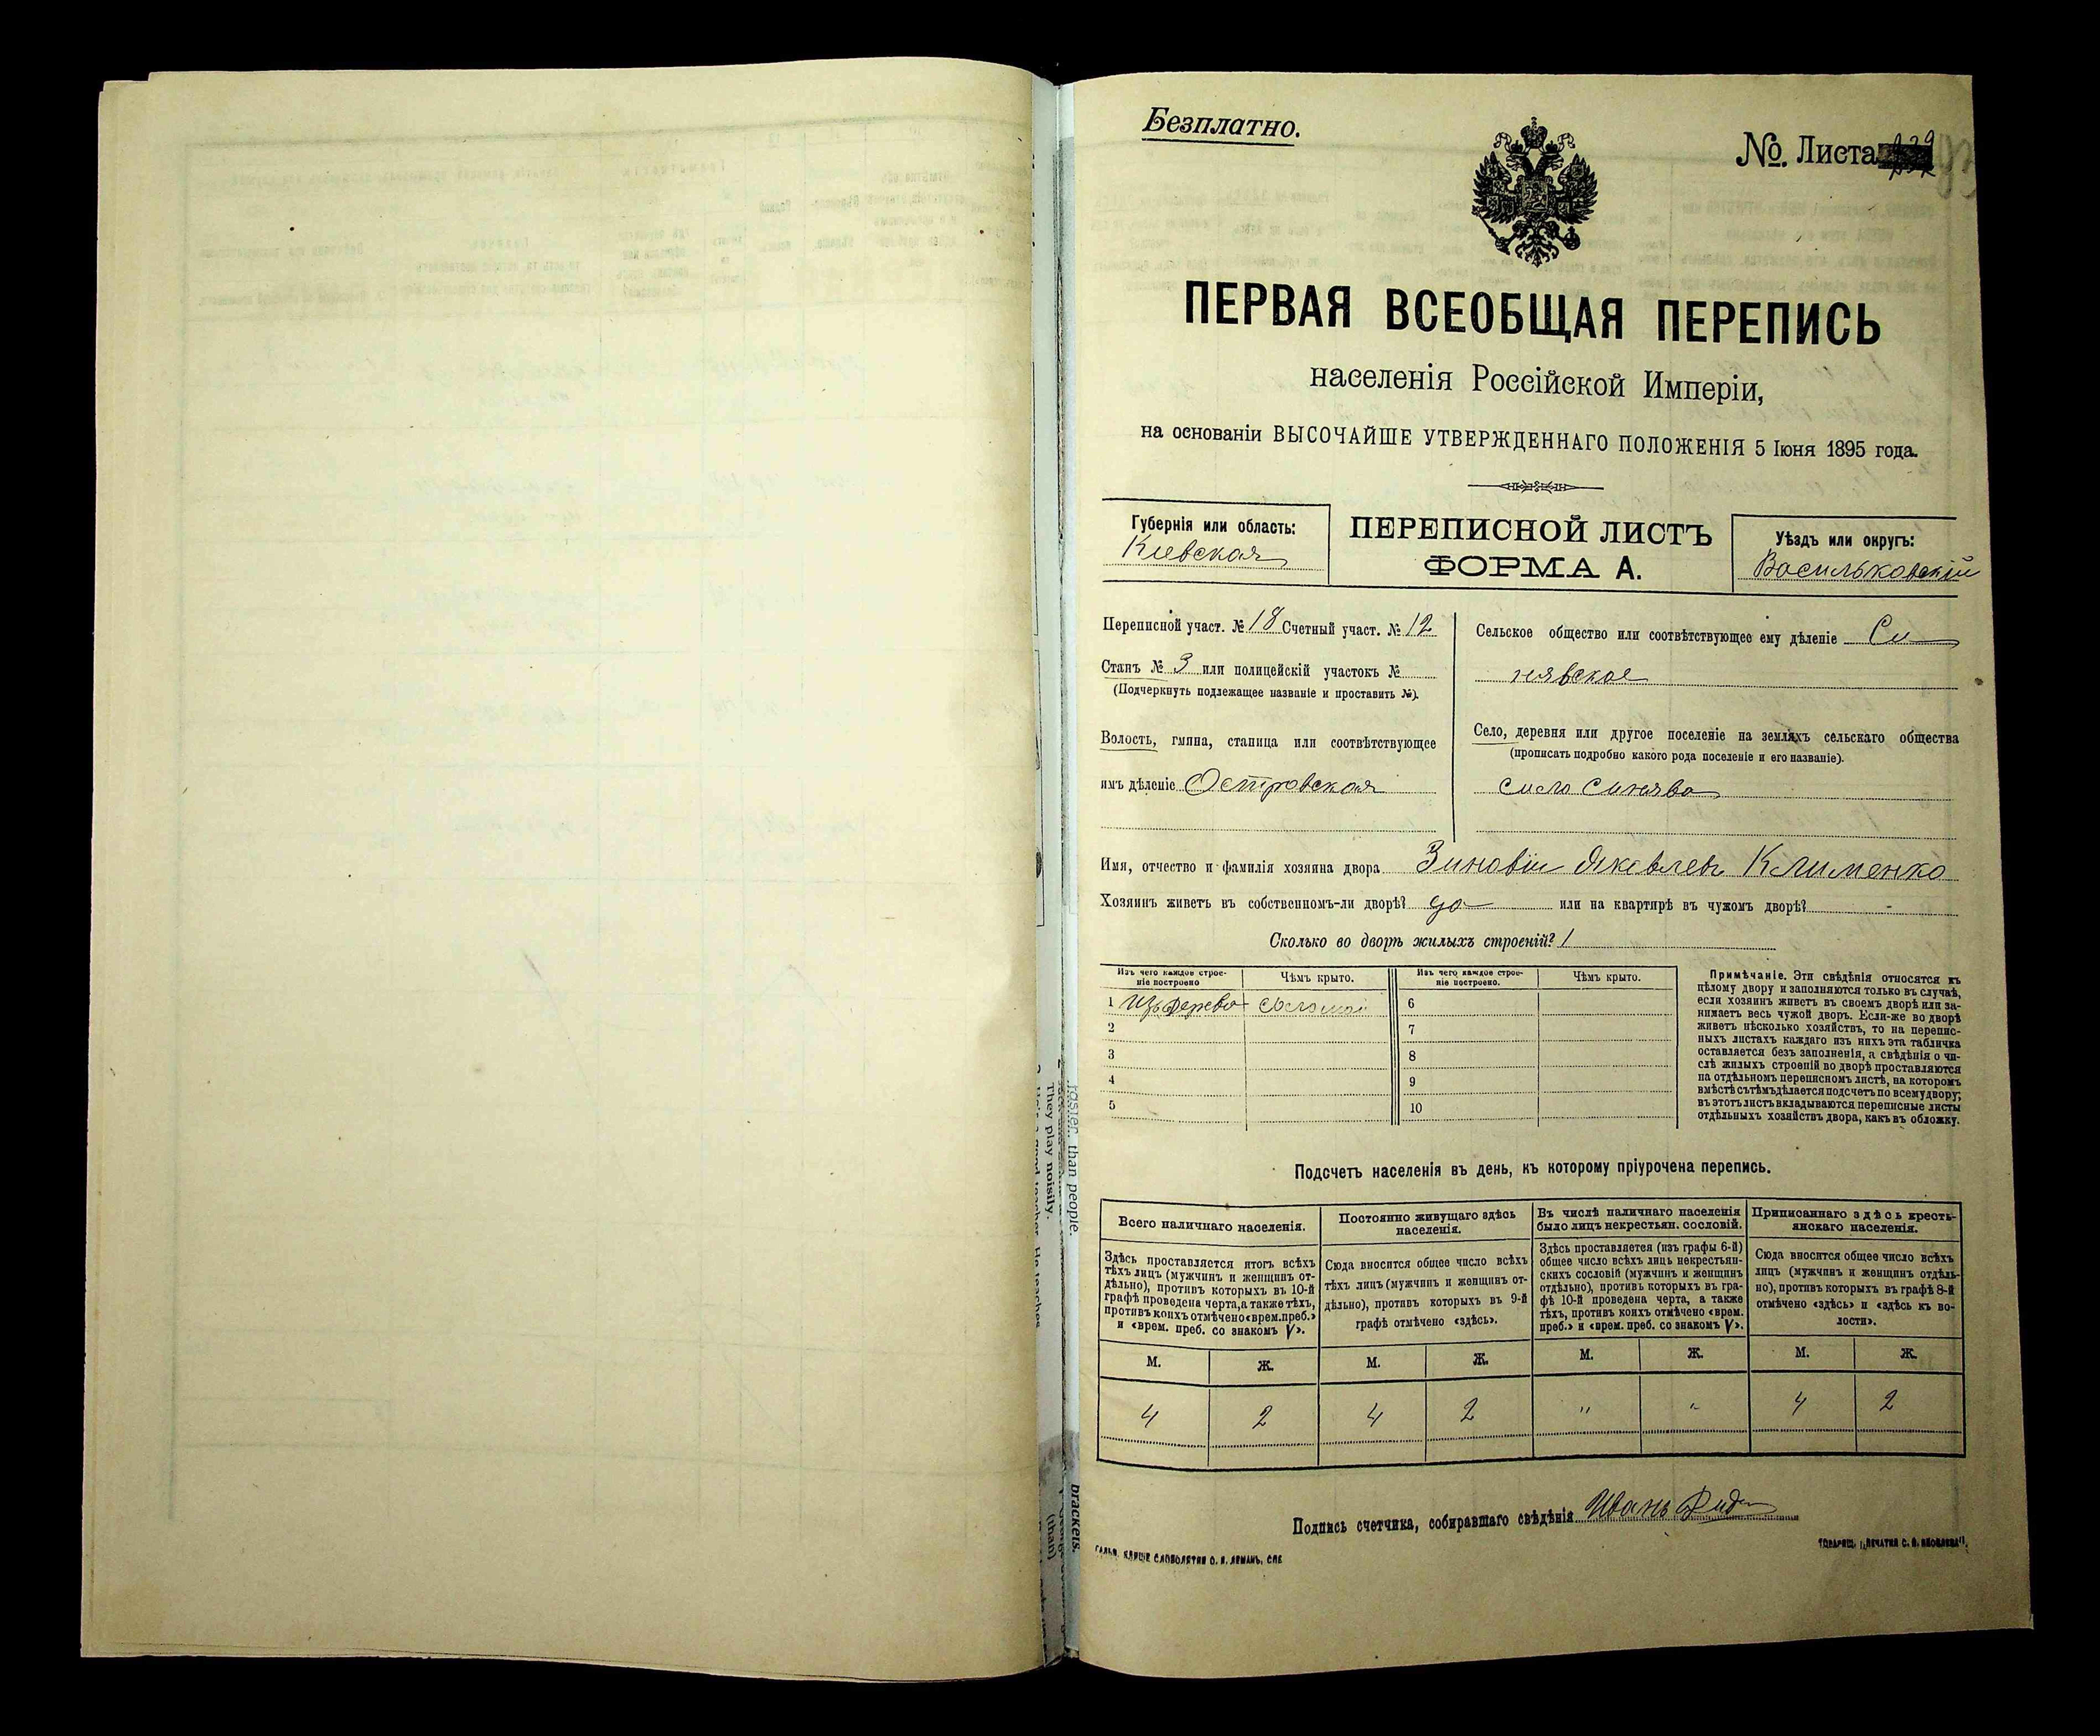 Безплатно.
№. Листа
ПЕРВАЯ ВСЕОБЩАЯ ПЕРЕПИСЬ
населенія Россійской Имперіи,
на основаніи ВЫСОЧАЙШЕ УТВЕРЖДЕННАГО ПОЛОЖЕНІЯ 5 Іюня 1895 года.
Губернія или область:
Кіевская
ПЕРЕПИСНОЙ ЛИСТЪ
ФОРМА А.
Уѣздъ или округъ:
Васильковскій
Переписной участ. № 18 Счетный участ. № 12
Станъ № 3 или полицейскій участокъ №
(Подчеркнуть подлежащее названіе и проставить №).
Волость, гмина, станица или соотвѣтствующее
имъ дѣленіе Островская
Сельское общество или соотвѣтствующее ему дѣленіе Си
нявское
Село, деревня или другое поселеніе на земляхъ сельскаго общества
(прописать подробно какого рода поселеніе и его названіе).
село Синява
Имя, отчество и фамилія хозяина двора Зиновій Яковлевъ Клименко
Хозяинъ живетъ въ собственномъ-ли дворѣ? да или на квартирѣ въ чужомъ дворѣ? -
Сколько во дворѣ жилыхъ строеній? 1
Изъ чего каждое строе-
ніе построено
Чѣмъ крыто.
Изъ чего каждое строе-
ніе построено.
Чѣмъ крыто.
1 Изъ дерева соломой 6
2 7
3 8
4 9
5 10
Примѣчаніе. Эти свѣдѣнія относятся къ
цѣлому двору и заполняются только въ случаѣ,
если хозяинъ живетъ въ своемъ дворѣ или за-
нимаетъ весь чужой дворъ. Если-же во дворѣ
живетъ нѣсколько хозяйствъ, то на перепис-
ныхъ листахъ каждаго изъ нихъ эта табличка
оставляется безъ заполненія, а свѣдѣнія о чи-
слѣ жилыхъ строеній во дворѣ проставляются
на отдѣльномъ переписномъ листѣ, на которомъ
вмѣстѣ съ тѣмъ дѣлается подсчетъ по всему двору;
въ этотъ листъ вкладываются переписные листы
отдѣльныхъ хозяйствъ двора, какъ въ обложку.
Подсчетъ населенія въ день, къ которому пріурочена перепись.
Всего наличнаго населенія.
Здѣсь проставляется итогъ всѣхъ
тѣхъ лицъ (мужчинъ и женщинъ от-
дѣльно), противъ которыхъ въ 10-й
графѣ проведена черта, а также тѣхъ,
противъ коихъ отмѣчено «врем. преб.»
и «врем. преб. со знакомъ V».
Постоянно живущаго здѣсь
населенія.
Сюда вносится общее число всѣхъ
тѣхъ лицъ (мужчинъ и женщинъ от-
дѣльно), противъ которыхъ въ 9-й
графѣ отмѣчено «здѣсь».
Въ числѣ наличнаго населенія
было лицъ некрестьян. сословій.
Здѣсь проставляется (изъ графы 6-й)
общее число всѣхъ лицъ некрестьян-
скихъ сословій (мужчинъ и женщинъ
отдѣльно), противъ которыхъ въ гра-
фѣ 10-й проведена черта, а также
тѣхъ, противъ коихъ отмѣчено «врем.
преб.» и «врем. преб. со знакомъ V».
Приписаннаго здѣсь кресть-
янскаго населенія.
Сюда вносится общее число всѣхъ
лицъ (мужчинъ и женщинъ отдѣль-
но), противъ которыхъ въ графѣ 8-й
отмѣчено «здѣсь» и «здѣсь къ во-
лости».
М. Ж. М. Ж. М. Ж. М. Ж.
4 2 4 2 " " 4 2
Подпись счетчика, собиравшаго свѣдѣнія Иванъ
than people.
They play noisily.
brackets.
(than)